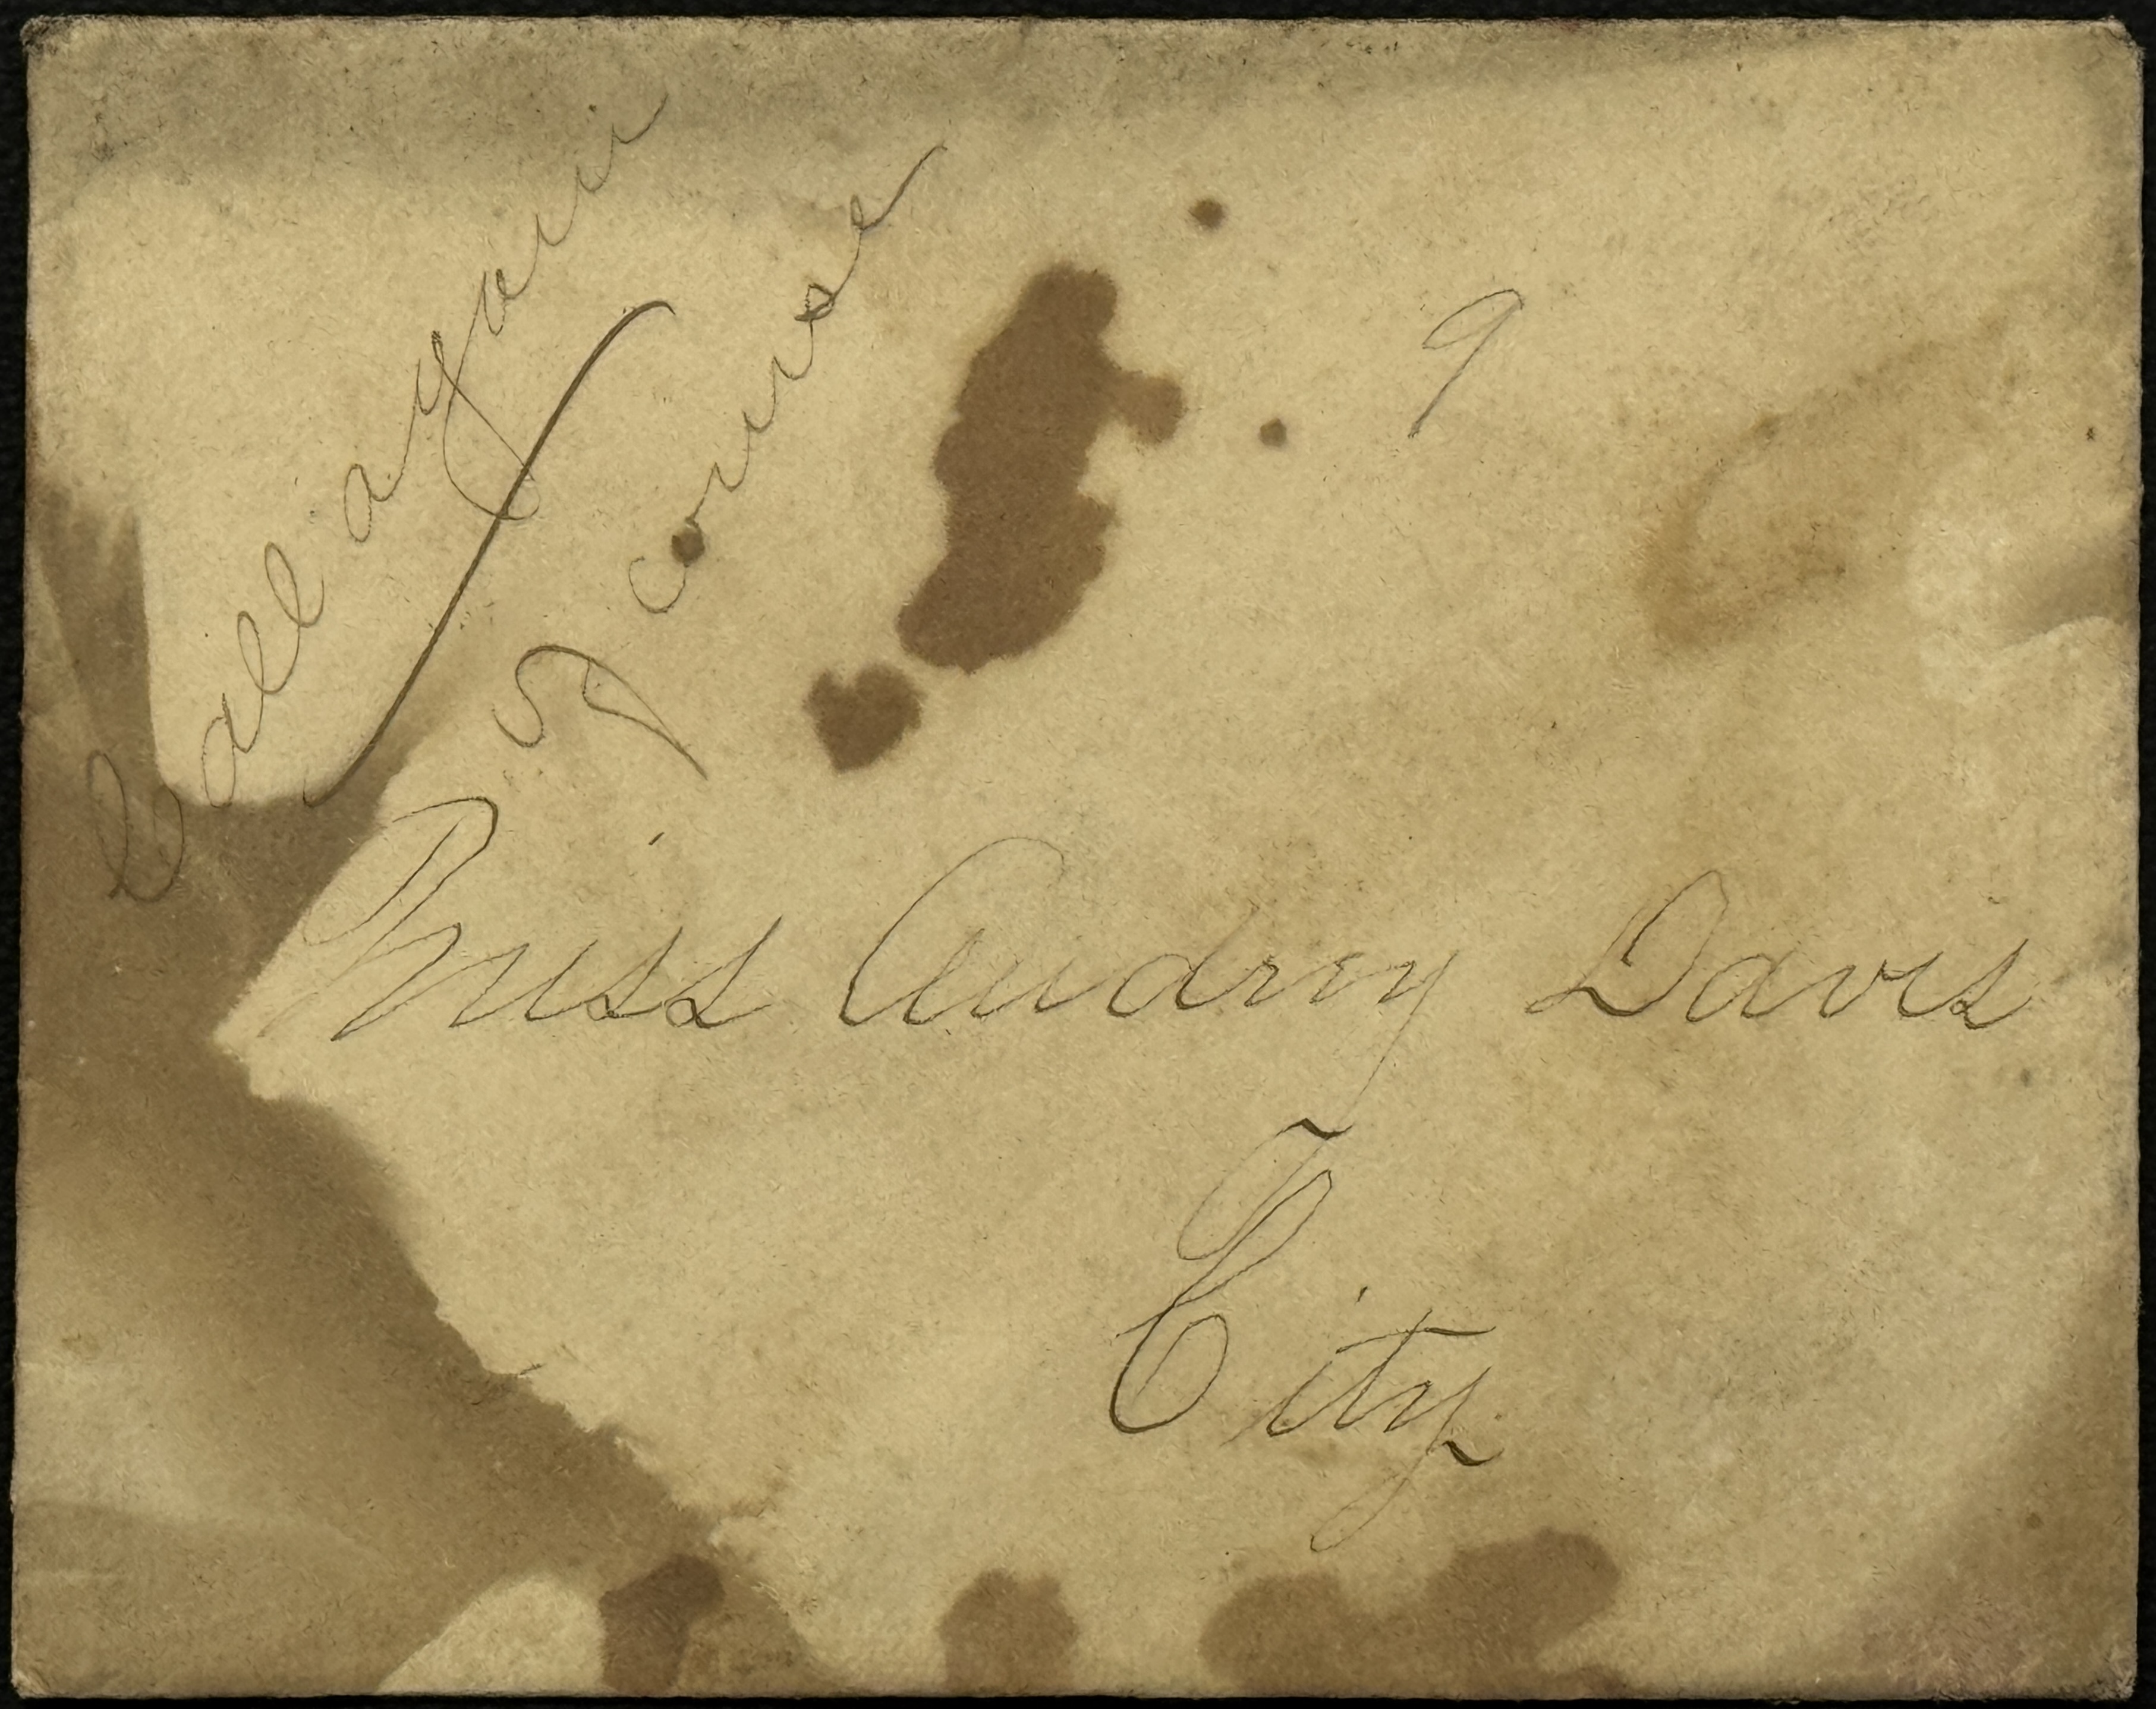 Call again
Of course
9
Miss Audrey Davis
City